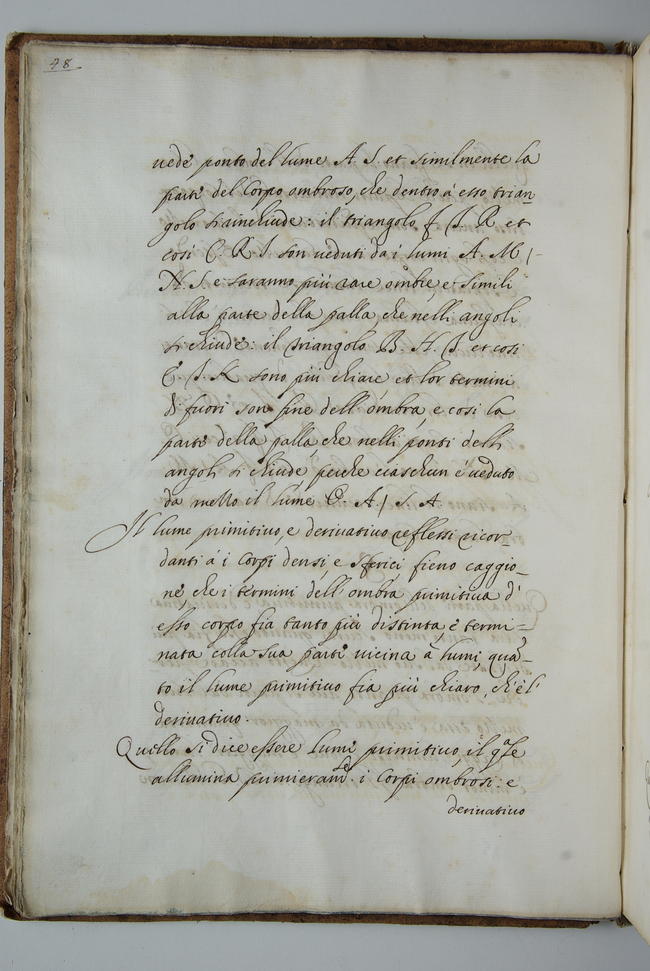 48
uede ponto del lume A S. et similmente la
parte del Corpo ombroso, che dentro à esso trian-
golo si rinchiude: il triangolo F. I. R. et
così C. R I. son ueduti da i lumi A. M /-
N. S. e saranno più rare ombre, e simili
alla parte della palla che nelli angoli
si chiude: il triangolo B. H. I. et così
C. I. K. sono più chiare et lor termini
di fuori son fine dell'ombra, e così la
parte della palla, che nelli ponti delli
angoli si chiude perche ciaschun è ueduto
da mello il lume C. A / S. A
Il lume primitiuo, e deriuatiuo reflessi ricor-
danti à i Corpi densi, e sferici fieno caggio-
ne, che i termini dell'ombra primitiua d'
esso corpo fia tanto più distinta, e termi-
nata colla sua parte uicina à lumi, quã-
to il lume primitiuo fia più chiaro, ch'è l'
deriuatiuo.
Quello si dice essere lume primitiuo, il qle
allumina primieramte i Corpi ombrosi: e
deriuatiuo